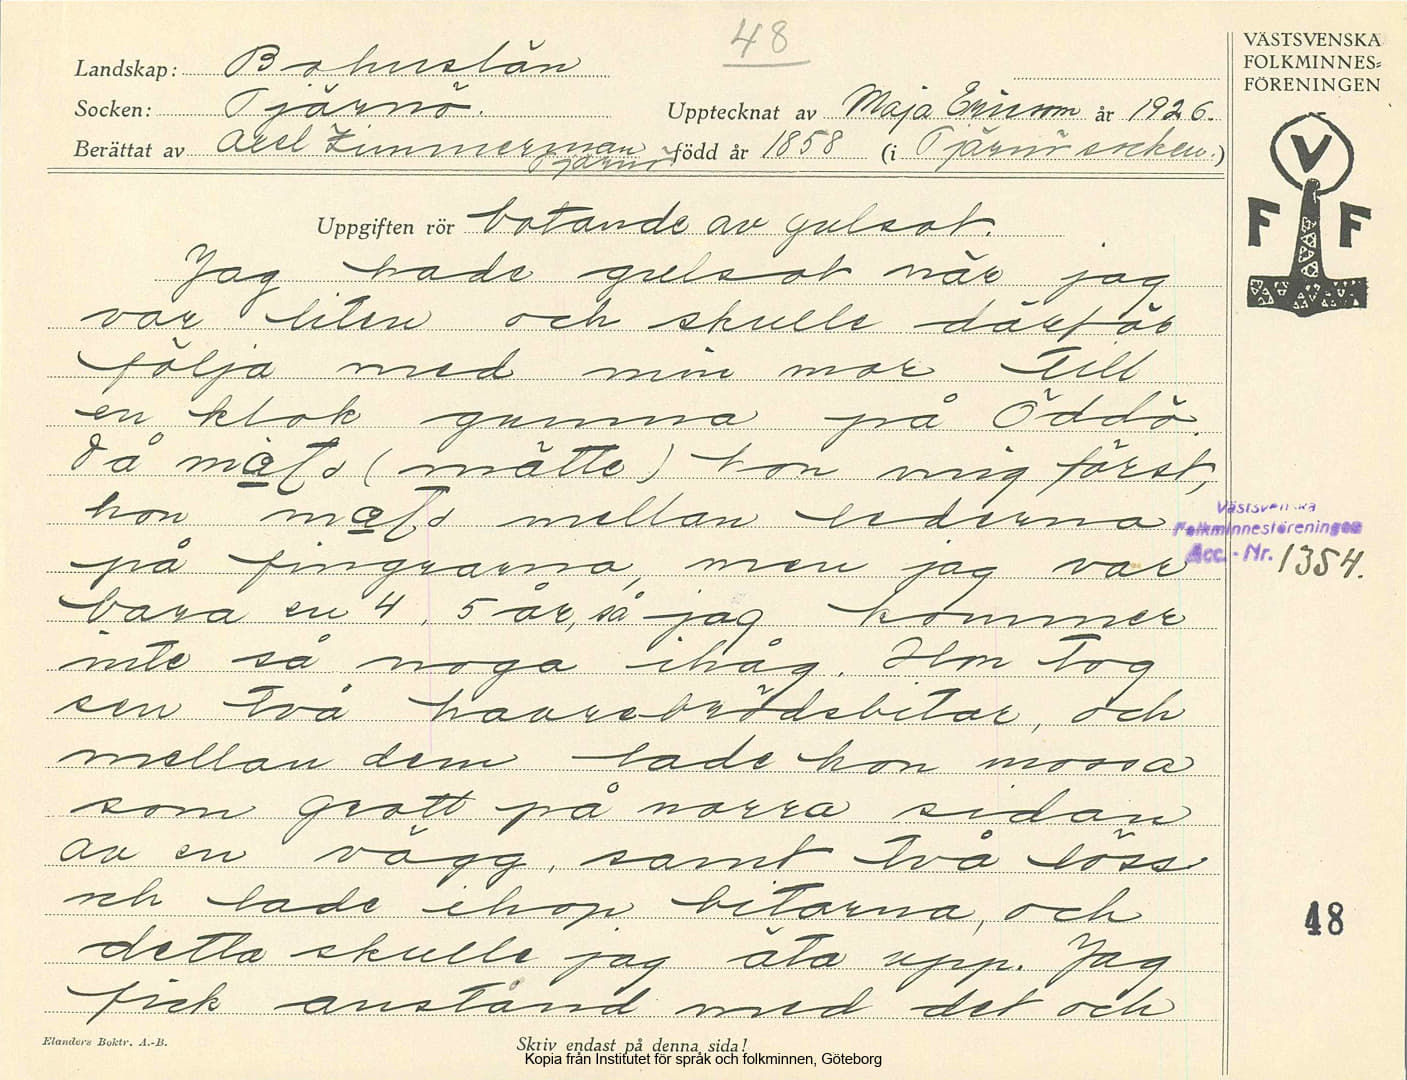 48
Landskap: Bohuslän
Socken: Tjärnö.
Upptecknat av Maja Ericson år 1926.
Berättat av Axel Zimmerman Tjärnö född år 1858 (i Tjärnö socken.)
Uppgiften rör botande av gulsot.
Jag hade gulsot när jag
var liten och skulle därför
följa med min mor till
en klok gumma på Öddö.
Då (mätte) hon mig först,
hon mellan lederna
på fingrarna, men jag var
bara en 4, 5 år, så jag kommer
inte så noga ihåg. Hon tog
sen två havrebrödsbitar, och
mellan dem lade hon mossa
som grott på norra sidan
av en vägg, samt två löss
och lade ihop bitarna, och
detta skulle jag äta upp. Jag
fick anstånd med det och
Elanders Boktr. A.-B.
Skriv endast på denna sida!
Kopia från Institutet för språk och folkminnen, Göteborg
VÄSTSVENSKA
FOLKMINNES=
FÖRENINGEN
V
F F
Västsvenska
Folkminnesföreningen
Acc.-Nr. 1354.
48